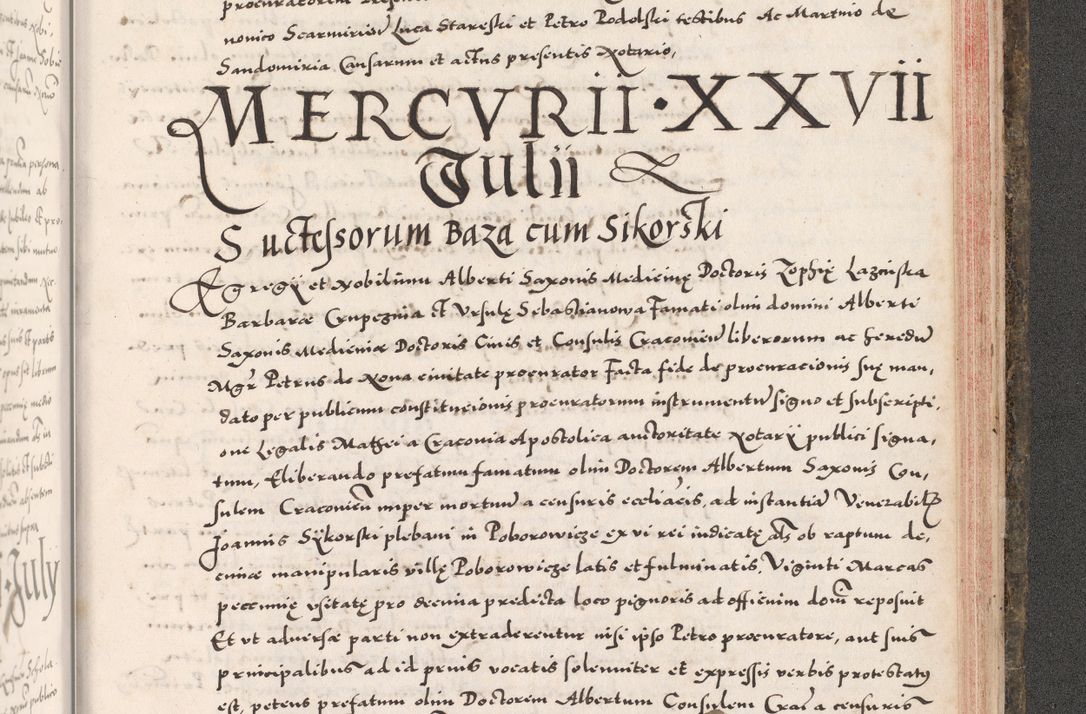 nonico Scarmirien Luca Stareski et Petro Podolski testibus Ac Martino de
Sandomiria Causarum et actus presentis Notario,
MERCVRII · XXVII
Julii
Suctessorum Baza cum Sikorski
Egregii et Nobilium Alberti Saxonis Medicinę Doctoris Zophię Lazniska
Barbaræ Crupeznia et Ursulę Sebastianowa Famati olim domini Alberti
Saxonis Medicinæ Doctoris Civis et Consulis Cracovien liberorum ac heredum
Mgr Petrus de Nova civitate procurator Facta fide de procuracionis suę man,
dato per publicum constitucionis procuratorum instrumentum signo et subscripti,
one Legalis Mathei a Cracovia Apostolica auctoritate Notarii publici signa,
tum, Eliberando prefatum famatum olim Doctorem Albertum Saxonis Con,
sulem Cracovien nuper mortuum a censuris eccliacis, ad instantiam Venerabilis
Joannis Sÿkorski plebani in Poborowicze ex vi rei iudicatę als ob raptum de,
cimæ manipularis villę Poborowicze latis et fulminatis, Viginti Marcas
pecunię usitatę pro decima predicta loco pignoris ad officium domi reposuit
Et ut adversæ parti non extraderentur nisi ipso Petro procuratore, aut suis
principalibus ad id prius vocatis solenniter et expressis verbis protestatus
est, petens prefatum olim Doctorem Albertum Consulem Crac a censuris
July